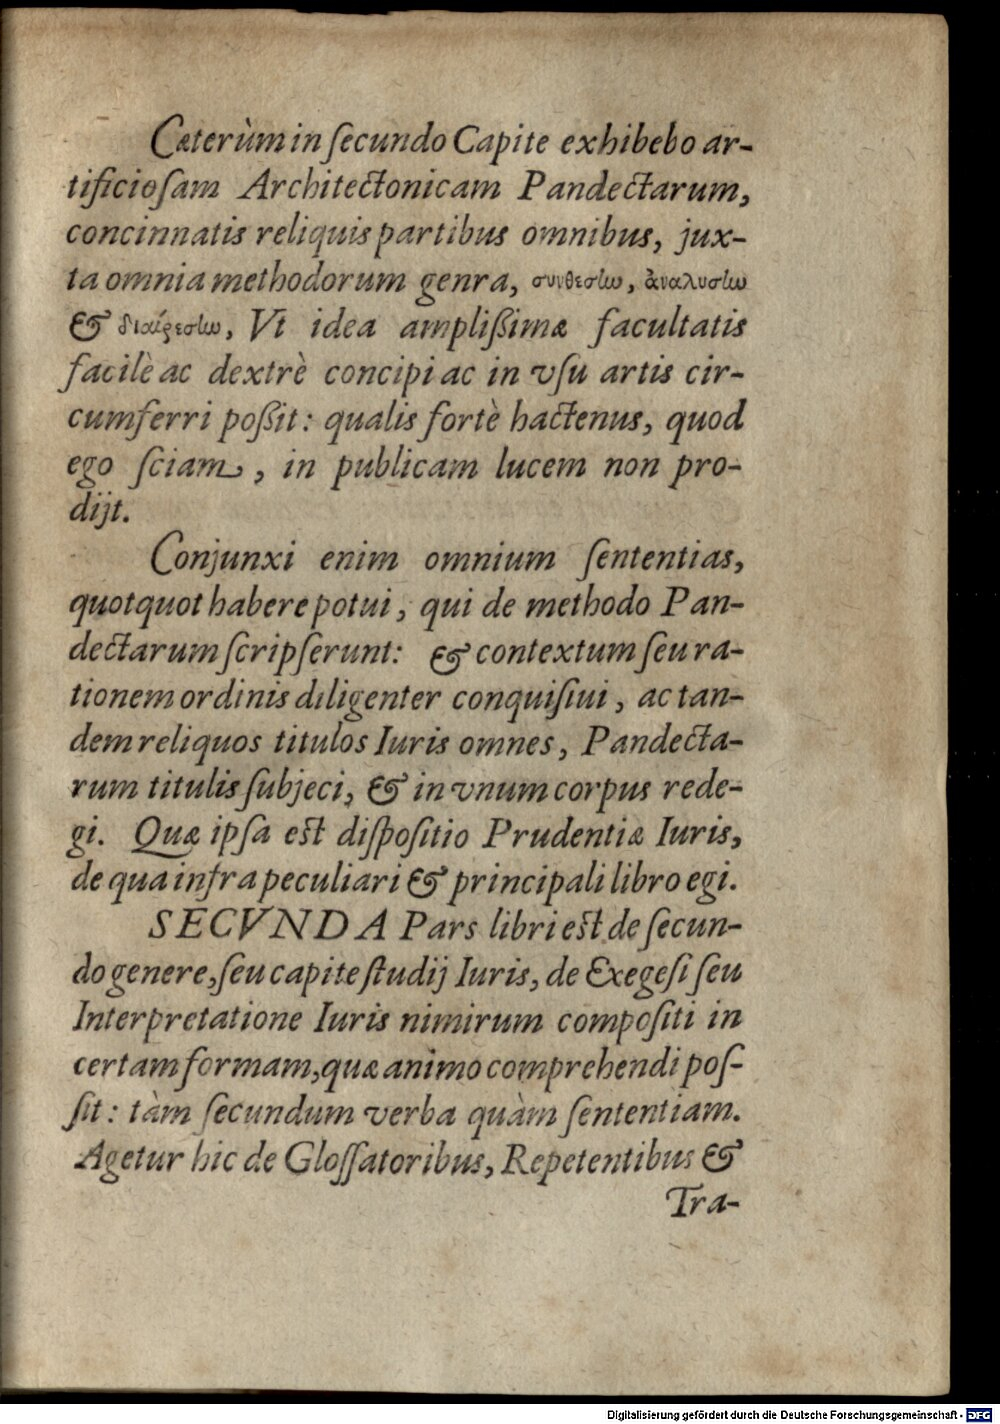 Cæterùm in ſecundo Capite exhibebo ar-
tificioſam Architectonicam Pandectarum,
concinnatis reliquis partibus omnibus, jux-
ta omnia methodorum genra, συνθεσιν, ἀναλυσιν
& διαίρεσιν, Vt idea ampliſſimæ facultatis
facilè ac dextrè concipi ac in vſu artis cir-
cumferri poßit: qualis fortè hactenus, quod
ego ſciam, in publicam lucem non pro-
dijt.
Conjunxi enim omnium ſententias,
quotquot habere potui, qui de methodo Pan-
dectarum ſcripſerunt: & contextum ſeu ra-
tionem ordinis diligenter conquiſiui, ac tan-
dem reliquos titulos Iuris omnes, Pandecta-
rum titulis ſubjeci, & in vnum corpus rede-
gi. Quæ ipſa est diſpoſitio Prudentiæ Iuris,
de qua infra peculiari & principali libro egi.
SECVNDA Pars libri est de ſecun-
do genere, ſeu capite ſtudij Iuris, de Exegeſi ſeu
Interpretatione Iuris nimirum compoſiti in
certam formam, quæ animo comprehendi poſ-
ſit: tàm ſecundum verba quàm ſententiam.
Agetur hic de Gloſſatoribus, Repetentibus &
Tra-
Digitalisierung gefördert durch die Deutsche Forschungsgemeinschaft - DFG